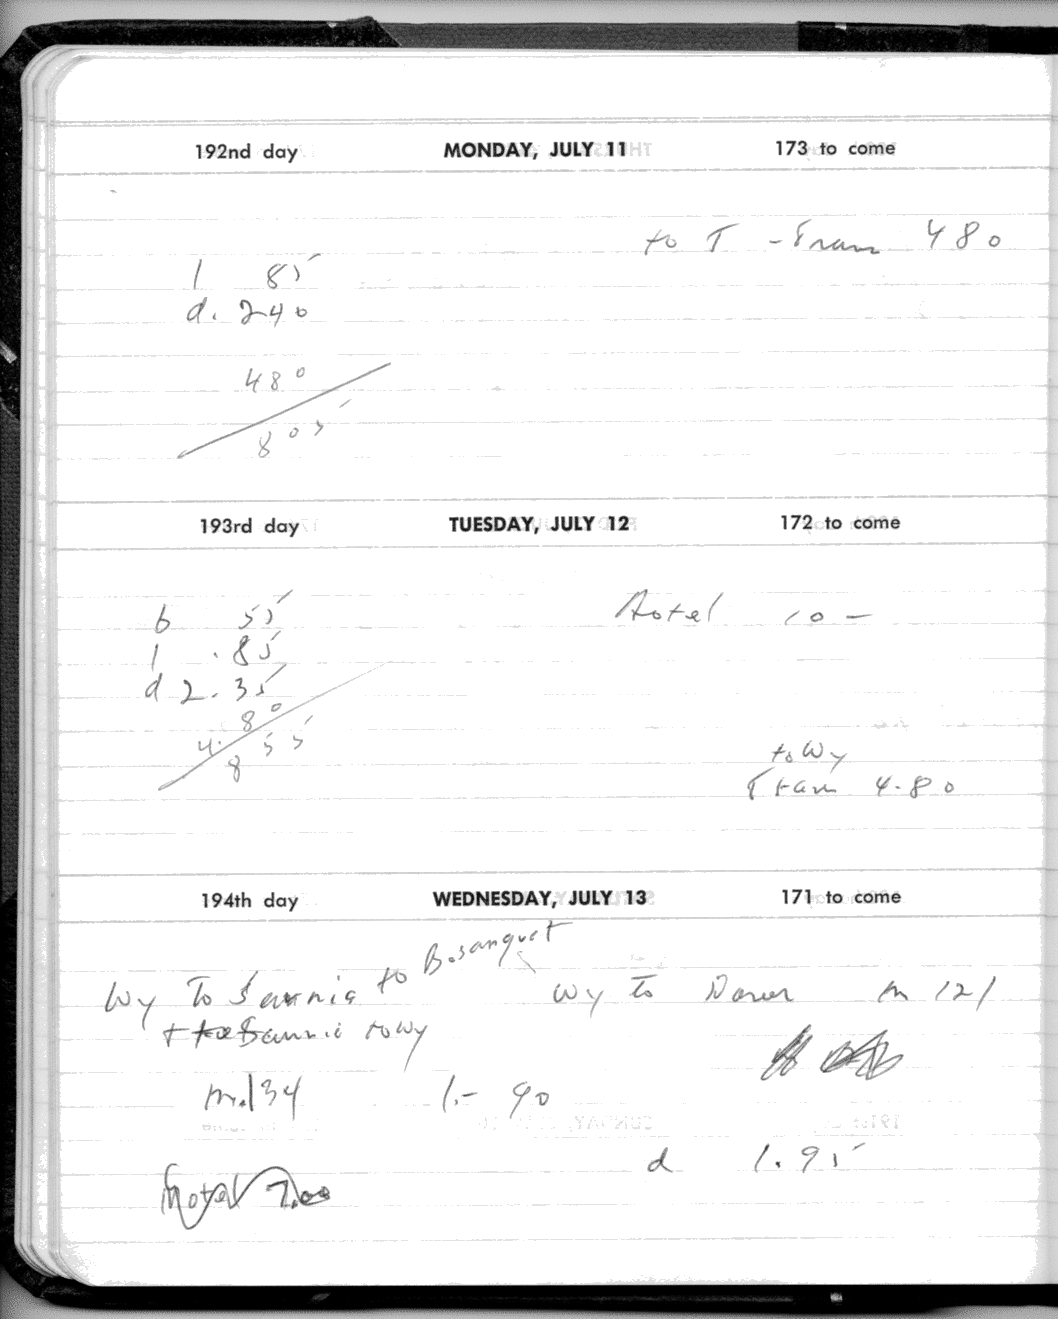 192nd day MONDAY, JULY 11 173 to come
to T - Tram 480
l 85
d. 240
480
805
193rd day TUESDAY, JULY 12 172 to come
b 55
Hotel 10 -
l .85
d 2.35
4.80
8 55
to Wy
Tram 4.80
194th day WEDNESDAY, JULY 13 171 to come
Wy To Sarnia to Bosanquet
Wy to Dover m 121
Sarnia to Wy
m.134
l.- 90
d 1.95
hotel 7.00